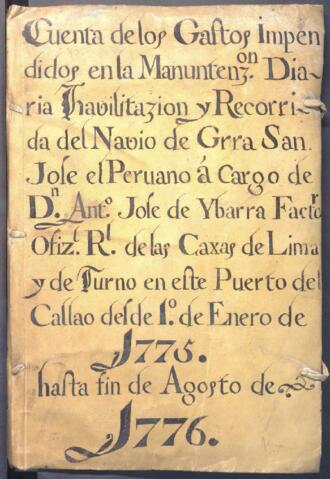 Cuenta de los Gastos Impen
didos en la Manuntenzon. Dia-
ria Havilitazion y Recorri-
da del Navio de Grra San
Jose el Peruano á Cargo de
Dn. Anto. Jose de Ybarra Factr.
Ofizl. Rl. de las Caxas de Lima
y de Turno en este Puerto del
Callao desde 1o. de Enero de
1775.
hasta fin de Agosto de
1776.